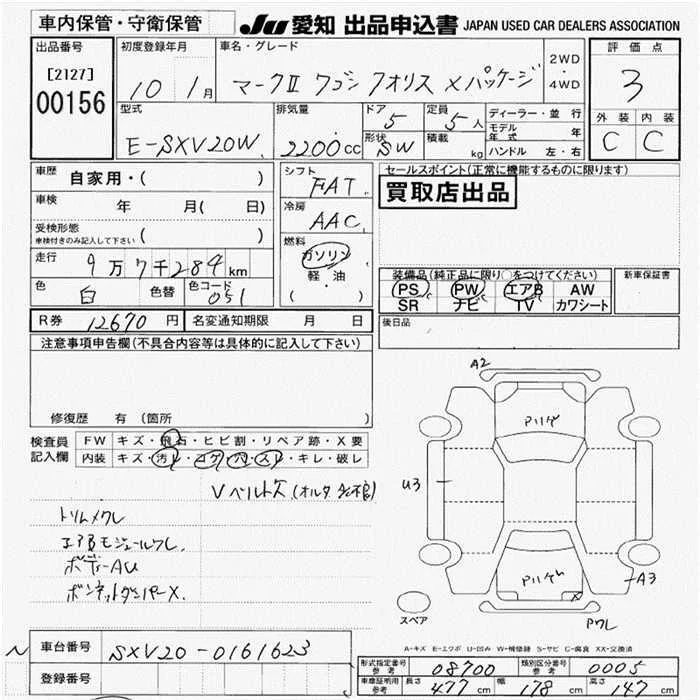 車内保管・守衛保管
JU 愛知 出品申込書 JAPAN USED CAR DEALERS ASSOCIATION
出品番号
[2127]
00156
初度登録年月
10年 1月
車名・グレード
マークⅡ ワゴン クオリス Xパッケージ
2WD
・
4WD
評価点
3
外装 内装
C C
型式
E-SXV20W
排気量
2200cc
ドア
5
定員
5人
形状
SW
積載
kg
ディーラー・並行
モデル年式 年
ハンドル 左・右
車歴
自家用・( )
車検
年 月( 日)
受検形態
車検付きのみ記入して下さい ( )
走行
9万7千284km
色
白
色替
色コード
051
シフト
FAT
冷房
AAC
燃料
ガソリン
軽・油
( )
セールスポイント(正常に機能するものに限ります)
買取店出品
装備品(純正品に限り○をつけてください)
PS PW エアB AW
SR ナビ TV カワシート
新車保証書
後日品
R券 12670円 名変通知期限 月 日
注意事項申告欄(不具合内容等は具体的に記入して下さい)
修復歴 有 (箇所 )
検査員記入欄
FW キズ・飛石・ヒビ割・リペア跡・X要
内装 キズ・汚レ・コゲ・穴・スレ・キレ・破レ
Vベルト欠(オルタ
トリムメクレ
エアBモジュールワレ
ボデーAU
ボンネットダンパーX
A2
Pハゲ
U3
Pハゲ
A3
X
Pワレ
スペア
A-キズ E-エクボ U-凹み W-補修跡 S-サビ C-腐食 XX-交換済
N
車台番号 SXV20-0161623
登録番号
形式指定番号参考 08700 類別区分番号参考 0005
車庫証明用参考 長さ 477cm 幅 178cm 高さ 147cm